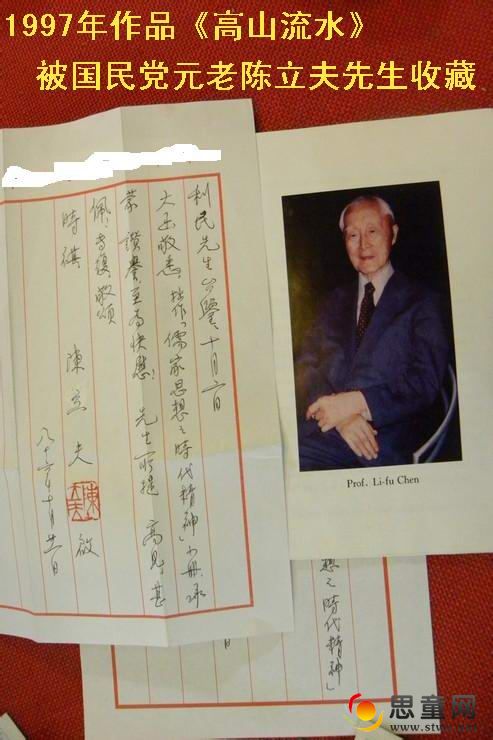 1997年作品《高山流水》
被国民党元老陈立夫先生收藏
利民先生台鑒十月六日
大函敬悉拙作「儒家思想之時代精神」小冊承
蒙讚譽至為快慰先生所提高見甚
佩專復敬頌
時祺
陳立夫啟
八十六年十月廿一日
Prof. Li-fu Chen
想之時代精神」
日
思童网